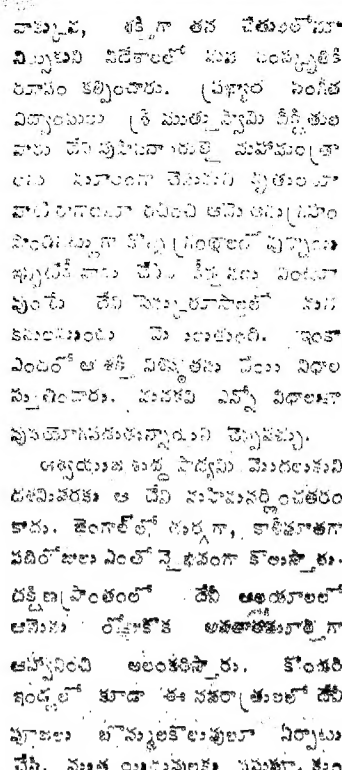 వాక్కున, శక్తిగా తన చేతులలోనూ
నిల్పుకుని విదేశాలలో మన సంస్కృతికి
రూపం కల్పించారు. ప్రఖ్యాత సంగీత
విద్వాంసులు శ్రీ ముత్తుస్వామి దీక్షితుల
వారు దేవి మహామంత్రా
లను మూలంగా చేసుకుని కృతులుగా
రచించి ఆమె అనుగ్రహం
పొందినట్లుగా కొన్ని గ్రంథాలలో వున్నాయి
ఇప్పటికీ వారు దేవి కీర్తనలు వింటూ
వుంటే దేవి మన
కనులముందు మెలుతుంది. ఇంకా
ఎందరో ఆ శక్తి విశిష్టతను వేయి విధాల
స్తుతించారు. మనకవి ఎన్నో విధాలుగా
వుపయోగపడుతున్నాయని చెప్పవచ్చు.
ఆశ్వయుజ శుద్ధ పాడ్యమి మొదలుకుని
దశమివరకు ఆ దేవి మహిమవర్ణించతరం
కాదు. బెంగాల్‌లో దుర్గగా, కాళీమాతగా
పదిరోజులు ఎంతో వైభవంగా కొలుస్తారు.
దక్షిణ ప్రాంతంలో దేవీ ఆలయాలలో
ఆమెను రోజుకొక అవతారమూర్తిగా
ఆహ్వానించి అలంకరిస్తారు. కొందరి
ఇండ్లలో కూడా ఈ నవరాత్రులలో దేవీ
పూజలు బొమ్మలకొలువులూ ఏర్పాటు
చేసి,